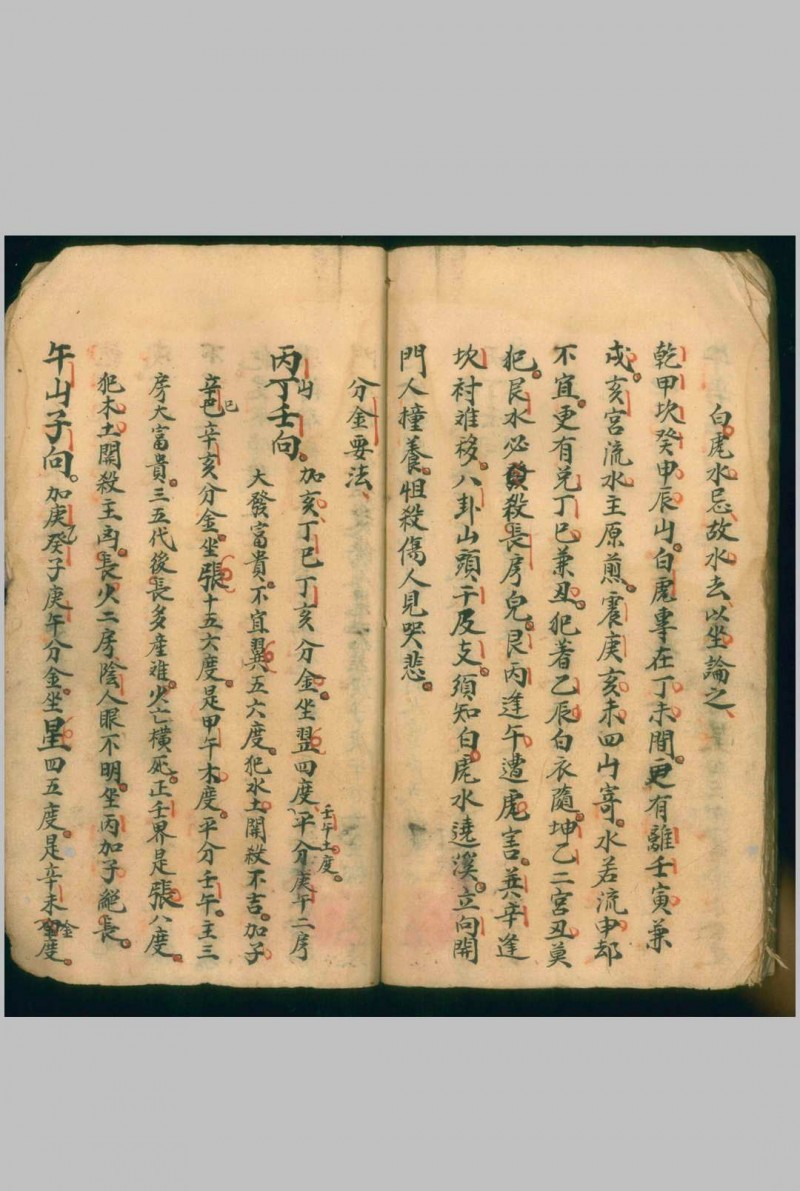 白虎水忌故水去以坐論之
乾甲坎癸申辰山。白虎專在丁未間。更有離壬寅兼
戌。亥宮流水主原煎。震庚亥未四山寄。水若流申却
不宜。更有兌丁巳兼丑。犯著乙辰白衣隨。坤乙二宮丑莫
犯。艮水必發殺長房兒。艮丙逢午遭虎害。巽辛逢
坎衬难移。八卦山頭干及支。須知白虎水遶溪。立向開
門人撞養。牲殺傷人見哭悲。
分金要法
丙山丁壬向。加亥丁巳丁亥分金。坐翌四度。壬午土度。平分庚午二房
大發富貴。不宜翼五六度。犯水土開殺不吉。加子
辛巳辛亥分金。坐張十五六度。是甲午木度。平分壬午。主三
房大富貴。三五代後長多產难。火亡橫死。正壬界是張八度。
犯木土開殺主凶。長火二房陰人眼不明。坐丙加子絕長。
午山子向。加庚癸子庚午分金。坐星四五度。是辛未金度。